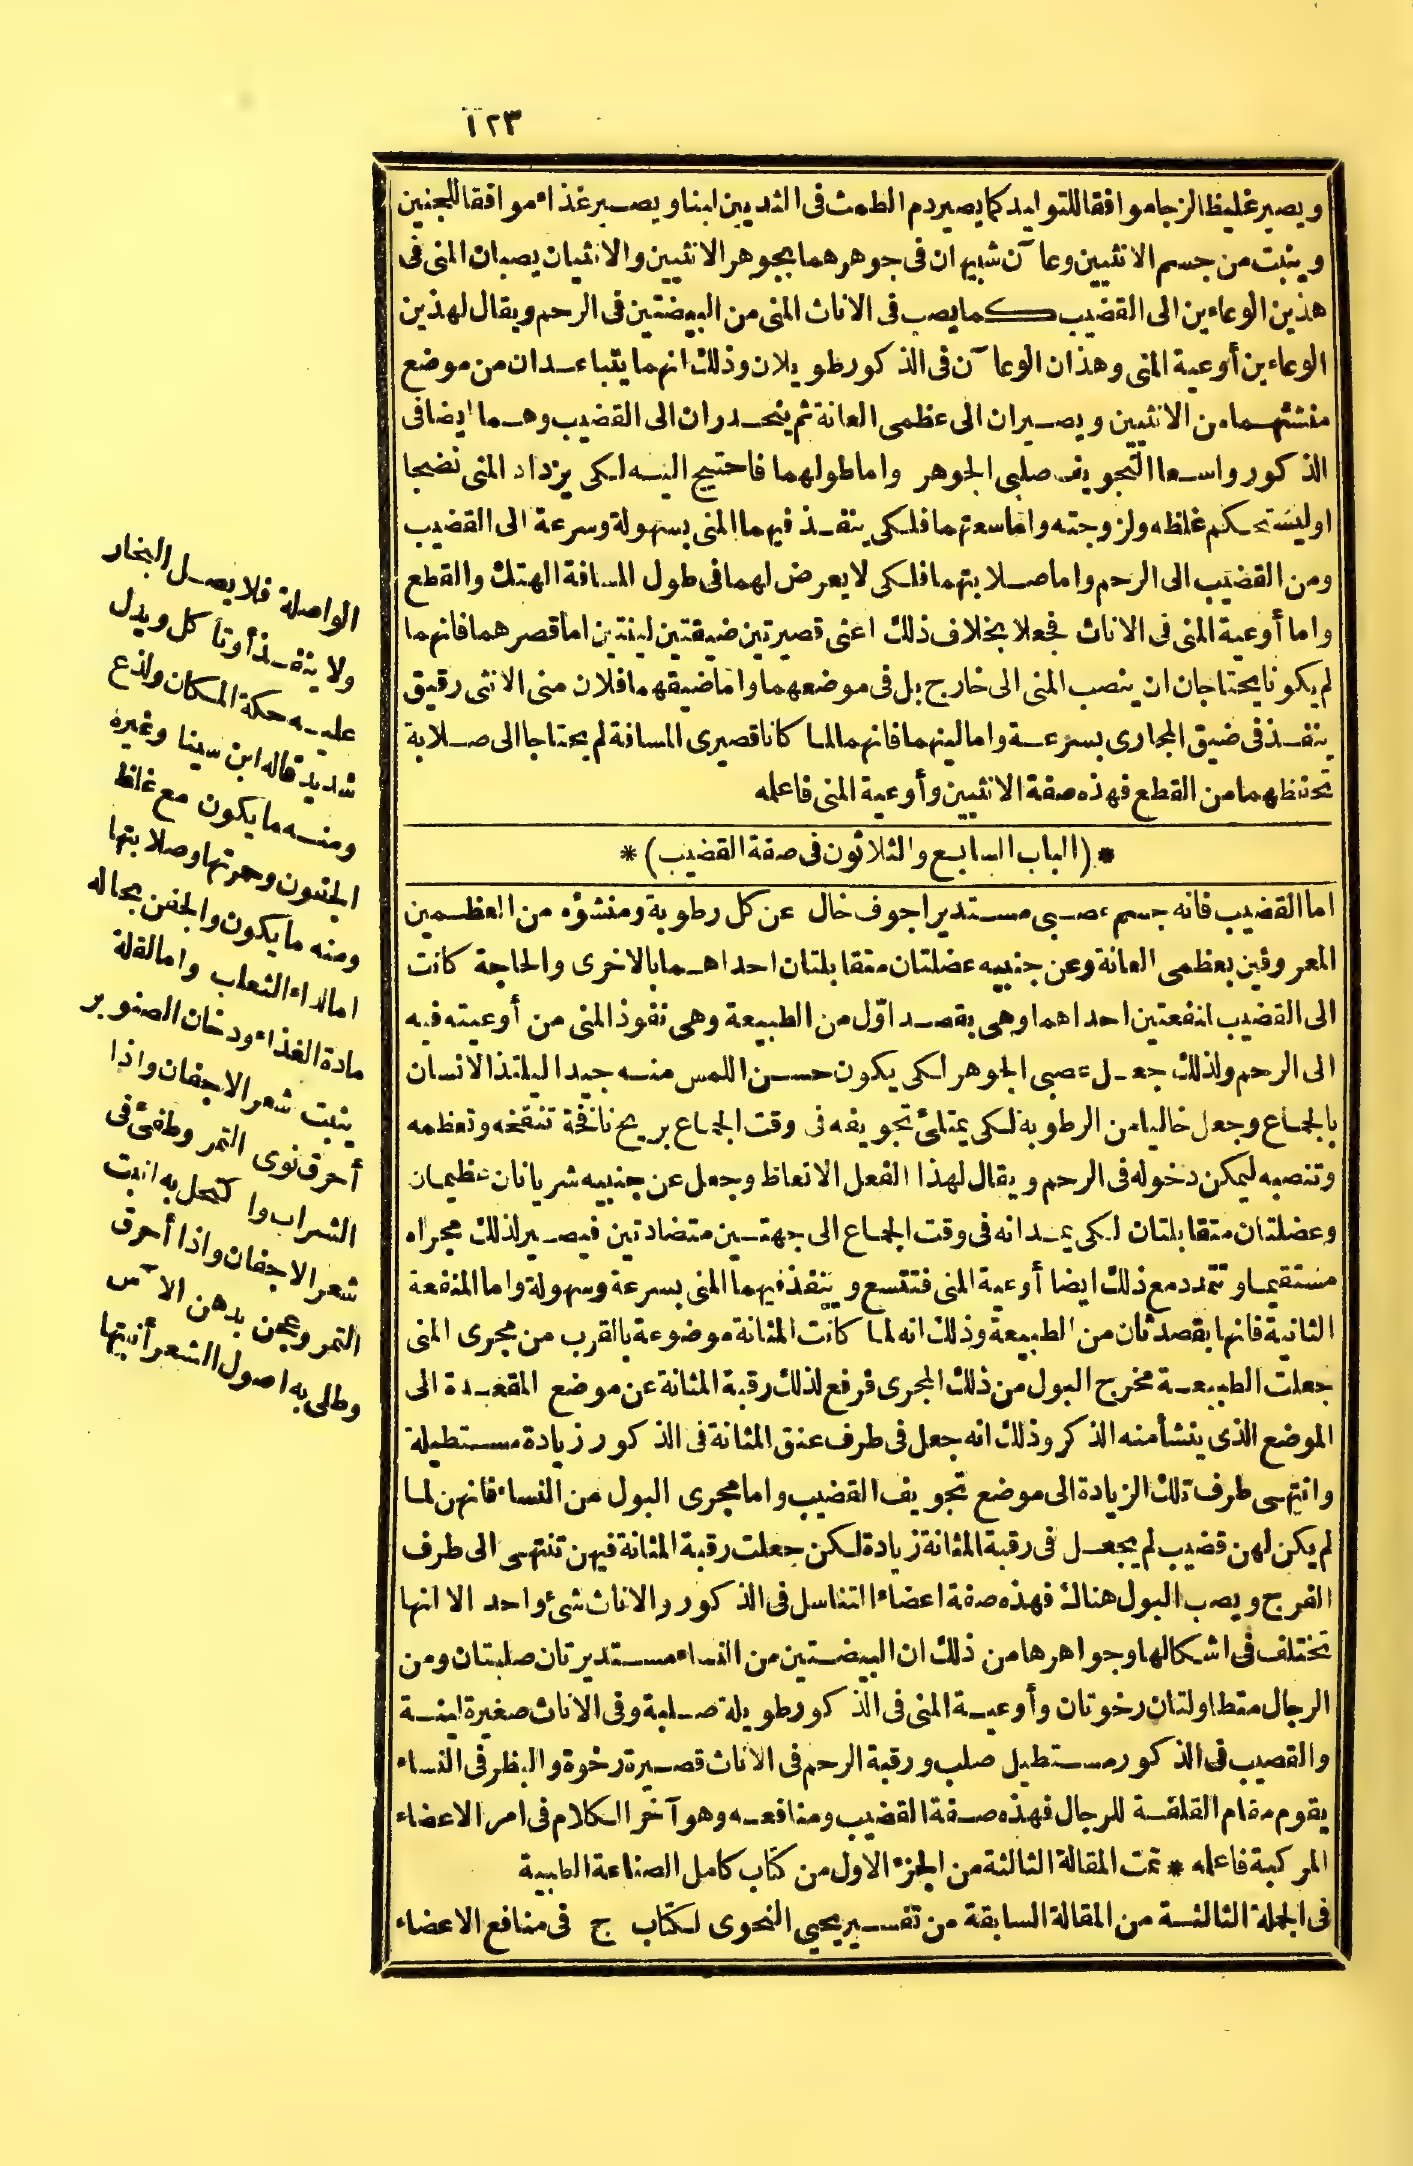 ١٢٣
ويصير غليظا لزجا موافقا للتوليد كما يصير دم الطمث فى الثديين لبنا ويصير غذاء موافقا للجنين
وينبت من جسم الانثيين وعاآن شبيهان فى جوهرهما بجوهر الانثيين والانثيان يصبان المنى فى
هذين الوعاءين الى القضيب كما يصب فى الاناث المنى من البيضتين فى الرحم ويقال لهذين
الوعاءين أوعية المنى وهذان الوعاآن فى الذكور طويلان وذلك انهما يتباعدان من موضع
منشئهما من الانثيين ويصيران الى عظمى العانة ثم ينحدران الى القضيب وهما ايضا فى
الذكور واسعا التجويف صلبى الجوهر واما طولهما فاحتيج اليه لكى يزداد المنى نضجا
او ليستحكم غلظه ولزوجته واما سعتهما فلكى ينفذ فيهما المنى بسهولة وسرعة الى القضيب
ومن القضيب الى الرحم واما صلابتهما فلكى لا يعرض لهما فى طول المسافة الهتك والقطع
واما أوعية المنى فى الاناث فجعلا بخلاف ذلك اعنى قصيرتين ضيقتين لينتين اما قصرهما فانهما
لم يكونا يحتاجان ان ينصب المنى الى خارج بل فى موضعهما واما ضيقهما فلان منى الانثى رقيق
ينفذ فى ضيق المجارى بسرعة واما لينهما فانهما لما كانا قصيرى المسافة لم يحتاجا الى صلابة
تحفظهما من القطع فهذه صفة الانثيين وأوعية المنى فاعلمه
* (الباب السابع والثلاثون فى صفة القضيب) *
اما القضيب فانه جسم عصبى مستدير اجوف خال عن كل رطوبة ومنشؤه من العظمين
المعروفين بعظمى العانة وعن جنبيه عضلتان متقابلتان احداهما بالاخرى والحاجة كانت
الى القضيب لنفعتين احداهما وهى بقصد اوّل من الطبيعة وهى نفوذ المنى من أوعيته فيه
الى الرحم ولذلك جعل عصبى الجوهر لكى يكون حسن اللمس منه جيدا ليلتذ الانسان
بالجماع وجعل خاليا من الرطوبة لكى يمتلئ تجويفه فى وقت الجماع بريح نافخة تنفخه وتعظمه
وتنصبه ليمكن دخوله فى الرحم ويقال لهذا الفعل الانعاظ وجعل عن جنبيه شريانان عظيمان
وعضلتان متقابلتان لكى يمدانه فى وقت الجماع الى جهتين متضادتين فيصير لذلك مجراه
مستقيما وتتمدد مع ذلك ايضا أوعية المنى فتتسع وينفذ فيهما المنى بسرعة وسهولة واما المنفعة
الثانية فانها بقصد ثان من الطبيعة وذلك انه لما كانت المثانة موضوعة بالقرب من مجرى المنى
جعلت الطبيعة مخرج البول من ذلك المجرى فرفع لذلك رقبة المثانة عن موضع المقعدة الى
الموضع الذى ينشأ منه الذكر وذلك انه جعل فى طرف عنق المثانة فى الذكور زيادة مستطيلة
وانتهى طرف تلك الزيادة الى موضع تجويف القضيب واما مجرى البول من النساء فانهن لما
لم يكن لهن قضيب لم يجعل فى رقبة المثانة زيادة لكن جعلت رقبة المثانة فيهن تنتهى الى طرف
الفرج ويصب البول هناك فهذه صفة اعضاء التناسل فى الذكور والاناث شئ واحد الا انها
تختلف فى اشكالها وجواهرها من ذلك ان البيضتين من النساء مستديرتان صلبتان ومن
الرجال متطاولتان رخوتان وأوعية المنى فى الذكور طويلة صلبة وفى الاناث صغيرة لينة
والقصيب فى الذكور مستطيل صلب ورقبة الرحم فى الاناث قصيرة رخوة والبظر فى النساء
يقوم مقام القلفة للرجال فهذه صفة القضيب ومنافعه وهو آخر الكلام فى امر الاعضاء
المركبة فاعلمه * تمت المقالة الثالثة من الجزء الاول من كتاب كامل الصناعة الطبية
فى الجملة الثالثة من المقالة السابقة من تفسير يحيى النحوى لكتاب ج فى منافع الاعضاء
الواصلة فلا يصل البخار
ولا ينفذ أو تأكل ويدل
عليه حكة المكان ولذع
شديد قاله ابن سينا وغيره
ومنه ما يكون مع غلظ
الجفون وحمرتها وصلابتها
ومنه ما يكون والجفن بحاله
اما لداء الثعلب واما لقلة
مادة الغذاء ودخان الصنوبر
ينبت شعر الاجفان واذا
أحرق نوى التمر وطفئ فى
الشراب واكتحل به انبت
شعر الاجفان واذا أحرق
التمر وعجن بدهن الآس
وطلى به اصول الشعر أنبتها